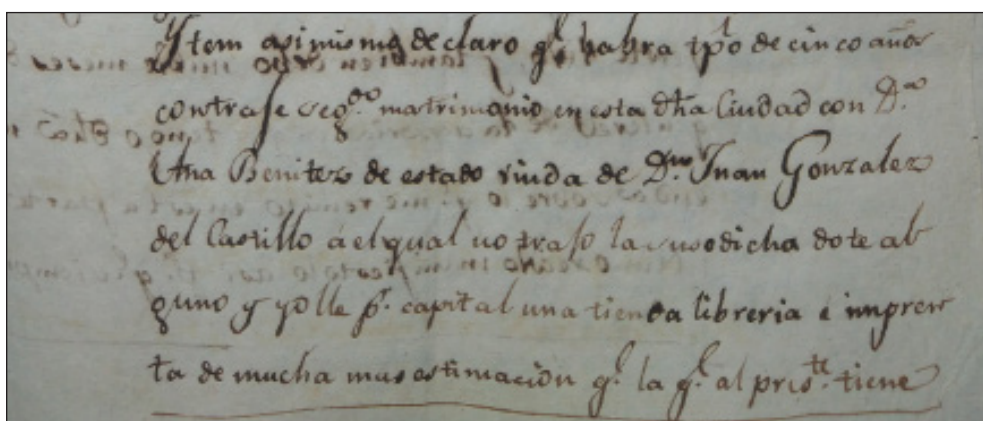 Ytem asimismo declaro q.e habra tpo de cinco años
contraje seg.do matrimonio en esta dha Ciudad con D.a
Ana Benitez de estado viuda de D.n Juan Gonzalez
del Castillo á el qual no trajo la susodicha dote al
guno y yo lle p.r capital una tienda libreria é impren
ta de mucha mas estimación q.e la q.e al pres.te tiene